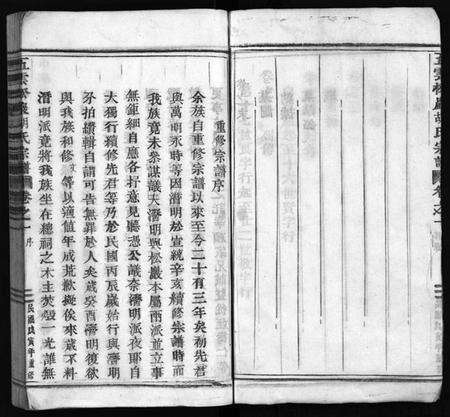 五雲松巖胡氏宗譜 卷之一
重修宗譜序
余族自重修宗譜以來至今二十有三年矣初先君
與萬明永時等因潛明於宣統辛亥續修宗譜時而
我族竟未柬謀議夫潛明與松巖本屬兩派並立事
無鉅細自應各抒意見聽憑公議奈潛明派夜郎自
大獨行續修先君等乃於民國丙辰歲始行與潛明
分拍續輯自謂可告無罪於人矣歲癸酉潛明復欲
與我族和修 等以適值年成荒歉擬俟來歲不料
潛明派竟將我族坐在總祠之木主焚燬一光誰無
五雲松巖胡氏宗譜 卷之一 序
民國戊寅年重修